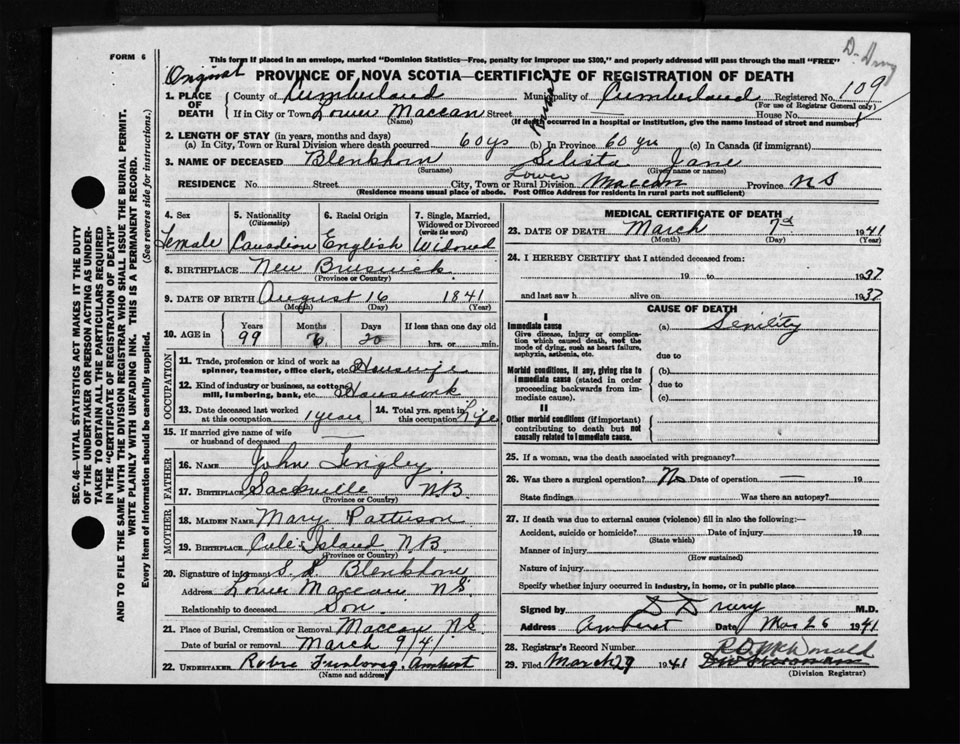 FORM 6
This form if placed in an envelope, marked "Dominion Statistics—Free, penalty for improper use $300," and properly addressed will pass through the mail "FREE"
D. Drury
Original PROVINCE OF NOVA SCOTIA—CERTIFICATE OF REGISTRATION OF DEATH
1. PLACE OF DEATH County of Cumberland Municipality of Cumberland Registered No. 109
(For use of Registrar General only)
If in City or Town Lower Maccan Street House No.
(Name) (If death occurred in a hospital or institution, give the name instead of street and number)
2. LENGTH OF STAY (in years, months and days)
(a) In City, Town or Rural Division where death occurred 60 ys (b) In Province 60 yrs (c) In Canada (if immigrant)
3. NAME OF DECEASED Blenkhorn Selista Jane
(Surname) (Given name or names)
RESIDENCE No. Street City, Town or Rural Division Lower Maccan Province NS
(Residence means usual place of abode. Post Office Address for residents in rural parts not sufficient)
4. Sex Female
5. Nationality (Citizenship) Canadian
6. Racial Origin English
7. Single, Married, Widowed or Divorced (write the word) Widowed
8. BIRTHPLACE New Brunswick
(Province or Country)
9. DATE OF BIRTH August 16 1841
(Month) (Day) (Year)
10. AGE in Years 99 Months 6 Days 20 If less than one day old hrs. or min.
OCCUPATION
11. Trade, profession or kind of work as spinner, teamster, office clerk, etc. Housewife
12. Kind of industry or business, as cotton mill, lumbering, bank, etc. Housework
13. Date deceased last worked at this occupation 1 year
14. Total yrs. spent in this occupation Life
15. If married give name of wife or husband of deceased —
FATHER
16. NAME John Tingley
17. BIRTHPLACE Sackville NB.
(Province or Country)
MOTHER
18. MAIDEN NAME Mary Patterson
19. BIRTHPLACE Island N.B.
(Province or Country)
20. Signature of informant S. L. Blenkhorn
Address Lower Maccan NS.
Relationship to deceased Son
21. Place of Burial, Cremation or Removal Maccan N.S.
Date of burial or removal March 9/41
22. UNDERTAKER Amherst
(Name and address)
MEDICAL CERTIFICATE OF DEATH
23. DATE OF DEATH March 7 1941
(Month) (Day) (Year)
24. I HEREBY CERTIFY that I attended deceased from:
19 to 1937
and last saw h alive on 1937
CAUSE OF DEATH
I
Immediate cause (a) Senility
Give disease, injury or complication which caused death, not the mode of dying, such as heart failure, asphyxia, asthenia, etc.
due to
Morbid conditions, if any, giving rise to immediate cause (stated in order proceeding backwards from immediate cause).
(b)
due to
(c)
II
Other morbid conditions (if important) contributing to death but not causally related to immediate cause.
25. If a woman, was the death associated with pregnancy?
26. Was there a surgical operation? No Date of operation — 19
State findings Was there an autopsy?
27. If death was due to external causes (violence) fill in also the following:—
Accident, suicide or homicide? Date of injury 19
(State which)
Manner of injury
(How sustained)
Nature of injury
Specify whether injury occurred in industry, in home, or in public place
Signed by D Drury M.D.
Address Amherst Date Mar 26 1941
28. Registrar's Record Number
29. Filed March 29 1941
(Division Registrar)
SEC. 46—VITAL STATISTICS ACT MAKES IT THE DUTY
OF THE UNDERTAKER OR PERSON ACTING AS UNDERTAKER TO OBTAIN ALL THE PARTICULARS REQUIRED
IN THE "CERTIFICATE OF REGISTRATION OF DEATH"
AND TO FILE THE SAME WITH THE DIVISION REGISTRAR WHO SHALL ISSUE THE BURIAL PERMIT.
WRITE PLAINLY WITH UNFADING INK. THIS IS A PERMANENT RECORD.
Every item of information should be carefully supplied. (See reverse side for instructions.)